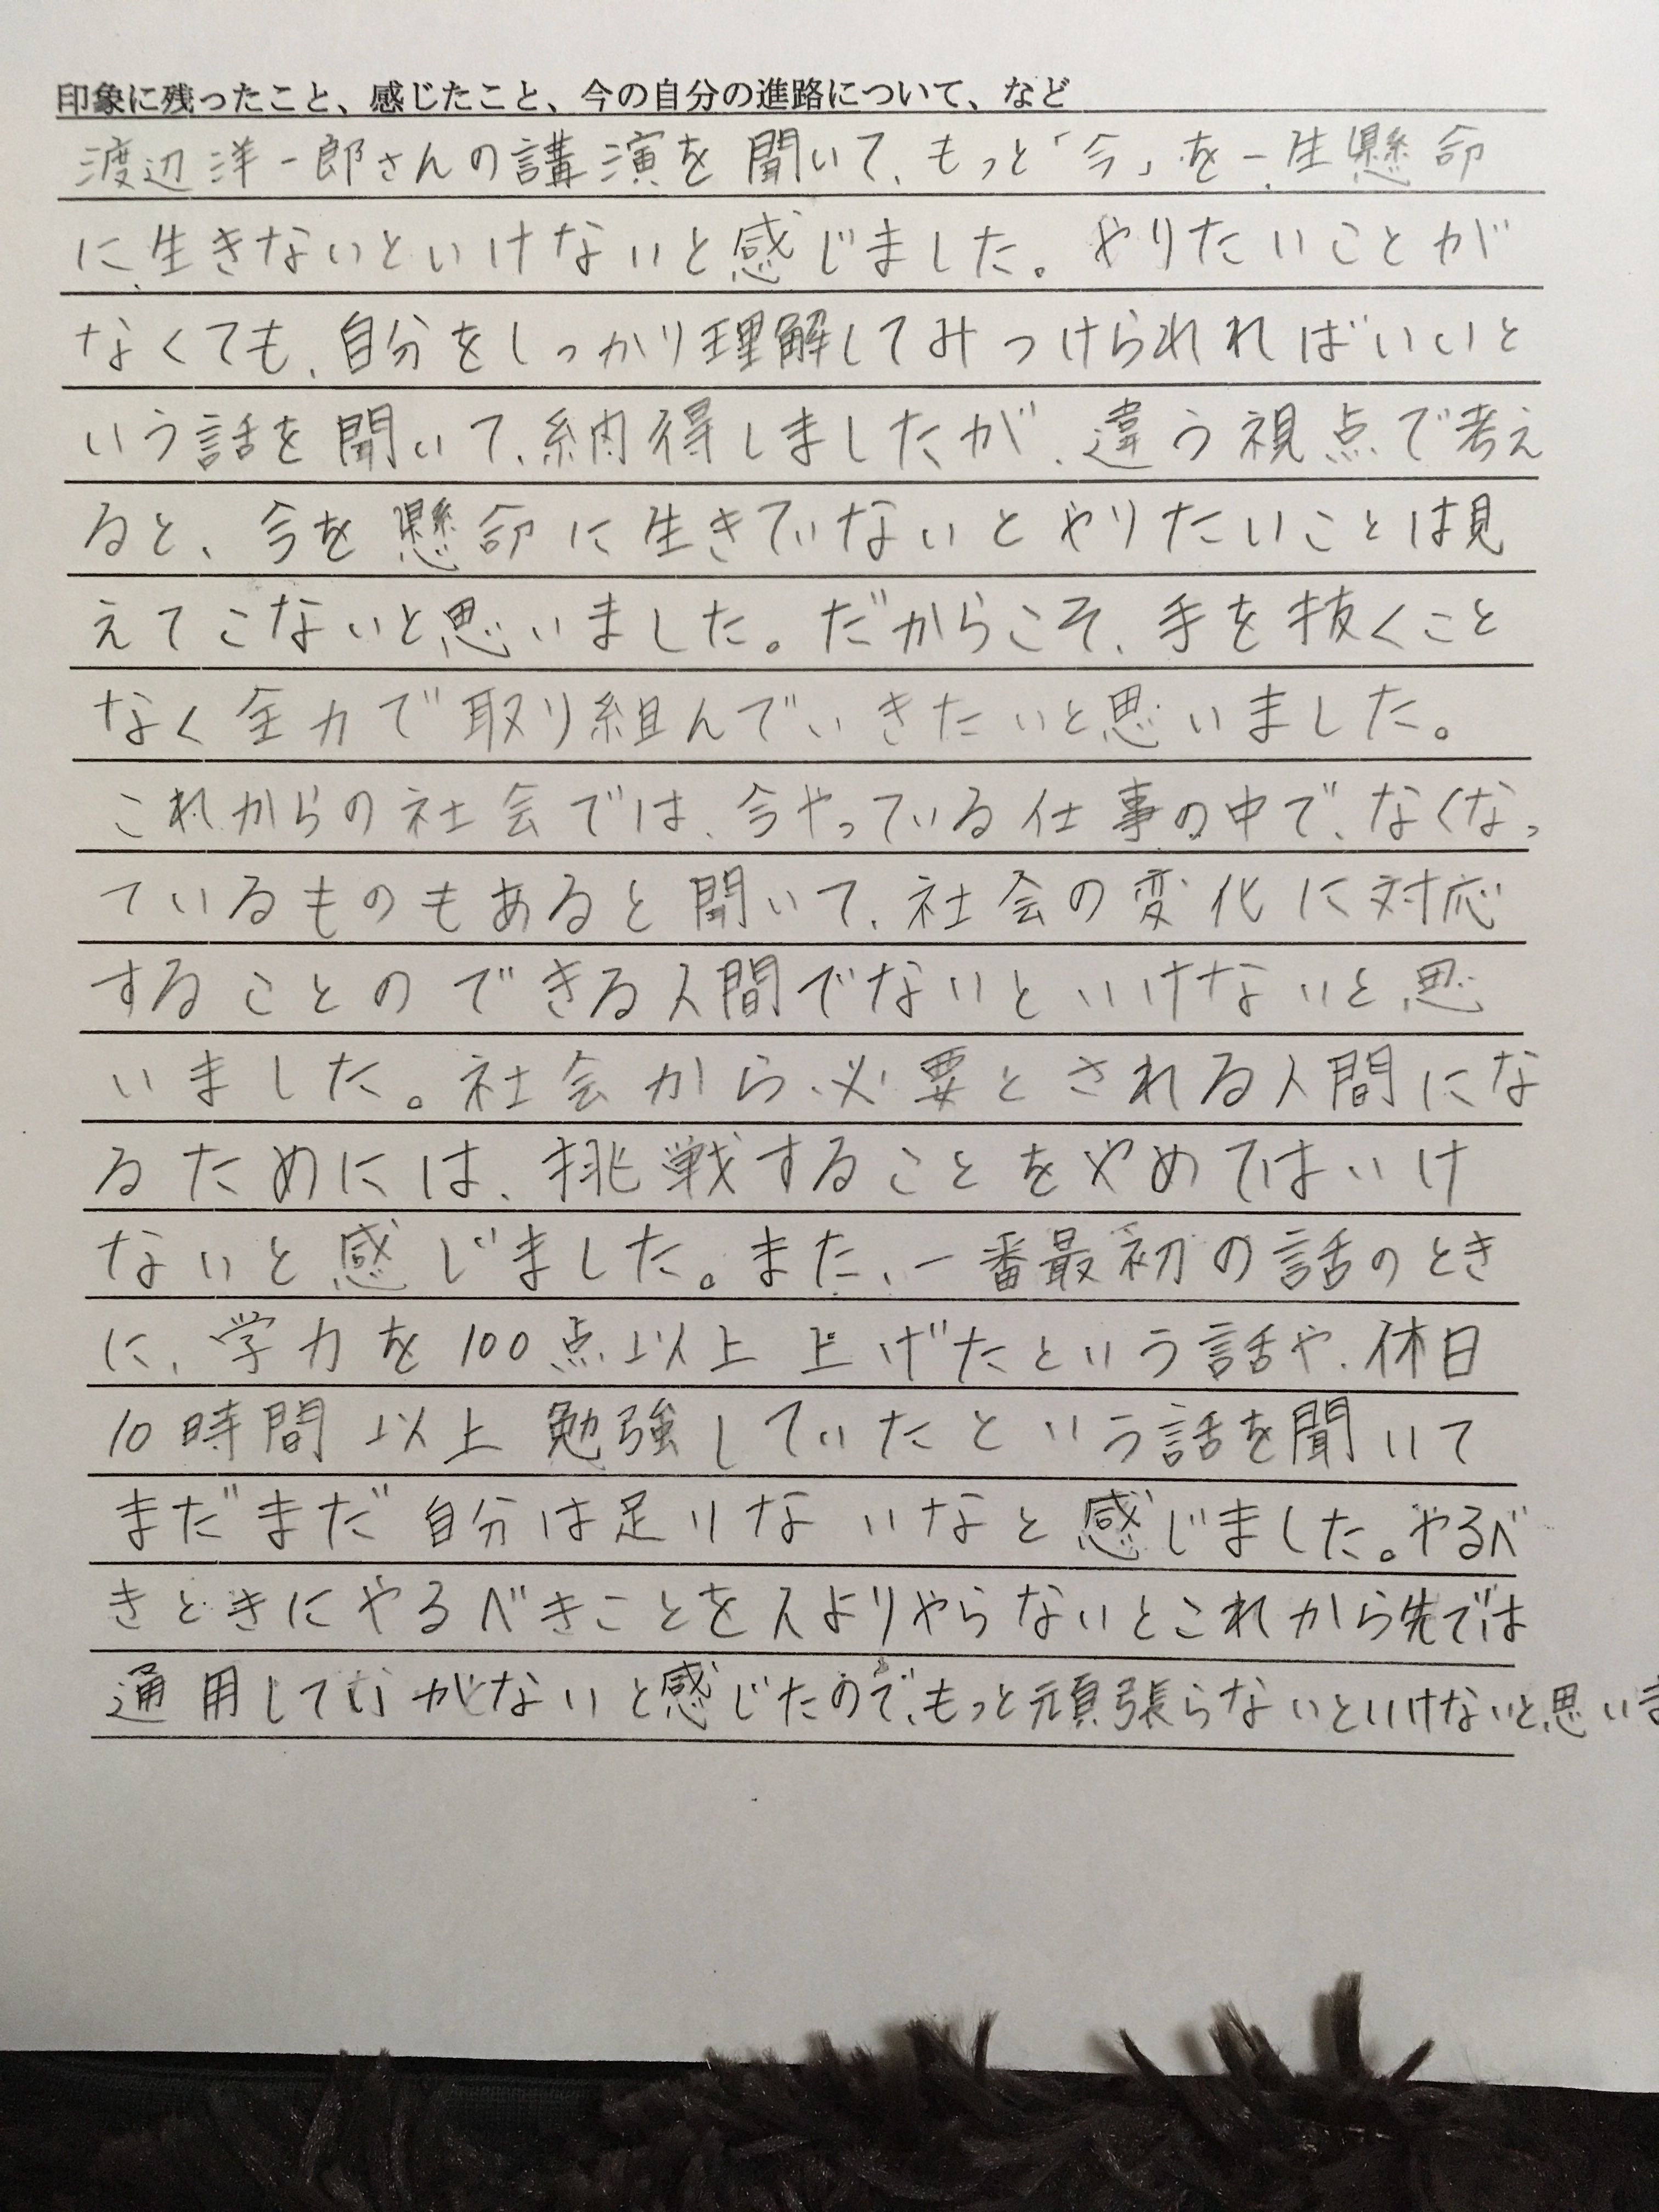 印象に残ったこと、感じたこと、今の自分の進路について、など
渡辺洋一郎さんの講演を聞いて、もっと「今」を一生懸命
に生きないといけないと感じました。やりたいことが
なくても、自分をしっかり理解してみつけられればいいと
いう話を聞いて、納得しましたが、違う視点で考え
ると、今を懸命に生きていないとやりたいことは見
えてこないと思いました。だからこそ、手を抜くこと
なく全力で取り組んでいきたいと思いました。
これからの社会では、今やっている仕事の中で、なくなっ
ているものもあると聞いて、社会の変化に対応
することのできる人間でないといけないと思
いました。社会から必要とされる人間にな
るためには、挑戦することをやめてはいけ
ないと感じました。また、一番最初の話のとき
に、学力を100点以上上げたという話や、休日
10時間以上勉強していたという話を聞いて
まだまだ自分は足りないなと感じました。やるべ
きときにやるべきことを人よりやらないとこれから先では
通用していかないと感じたので、もっと頑張らないといけないと思いま